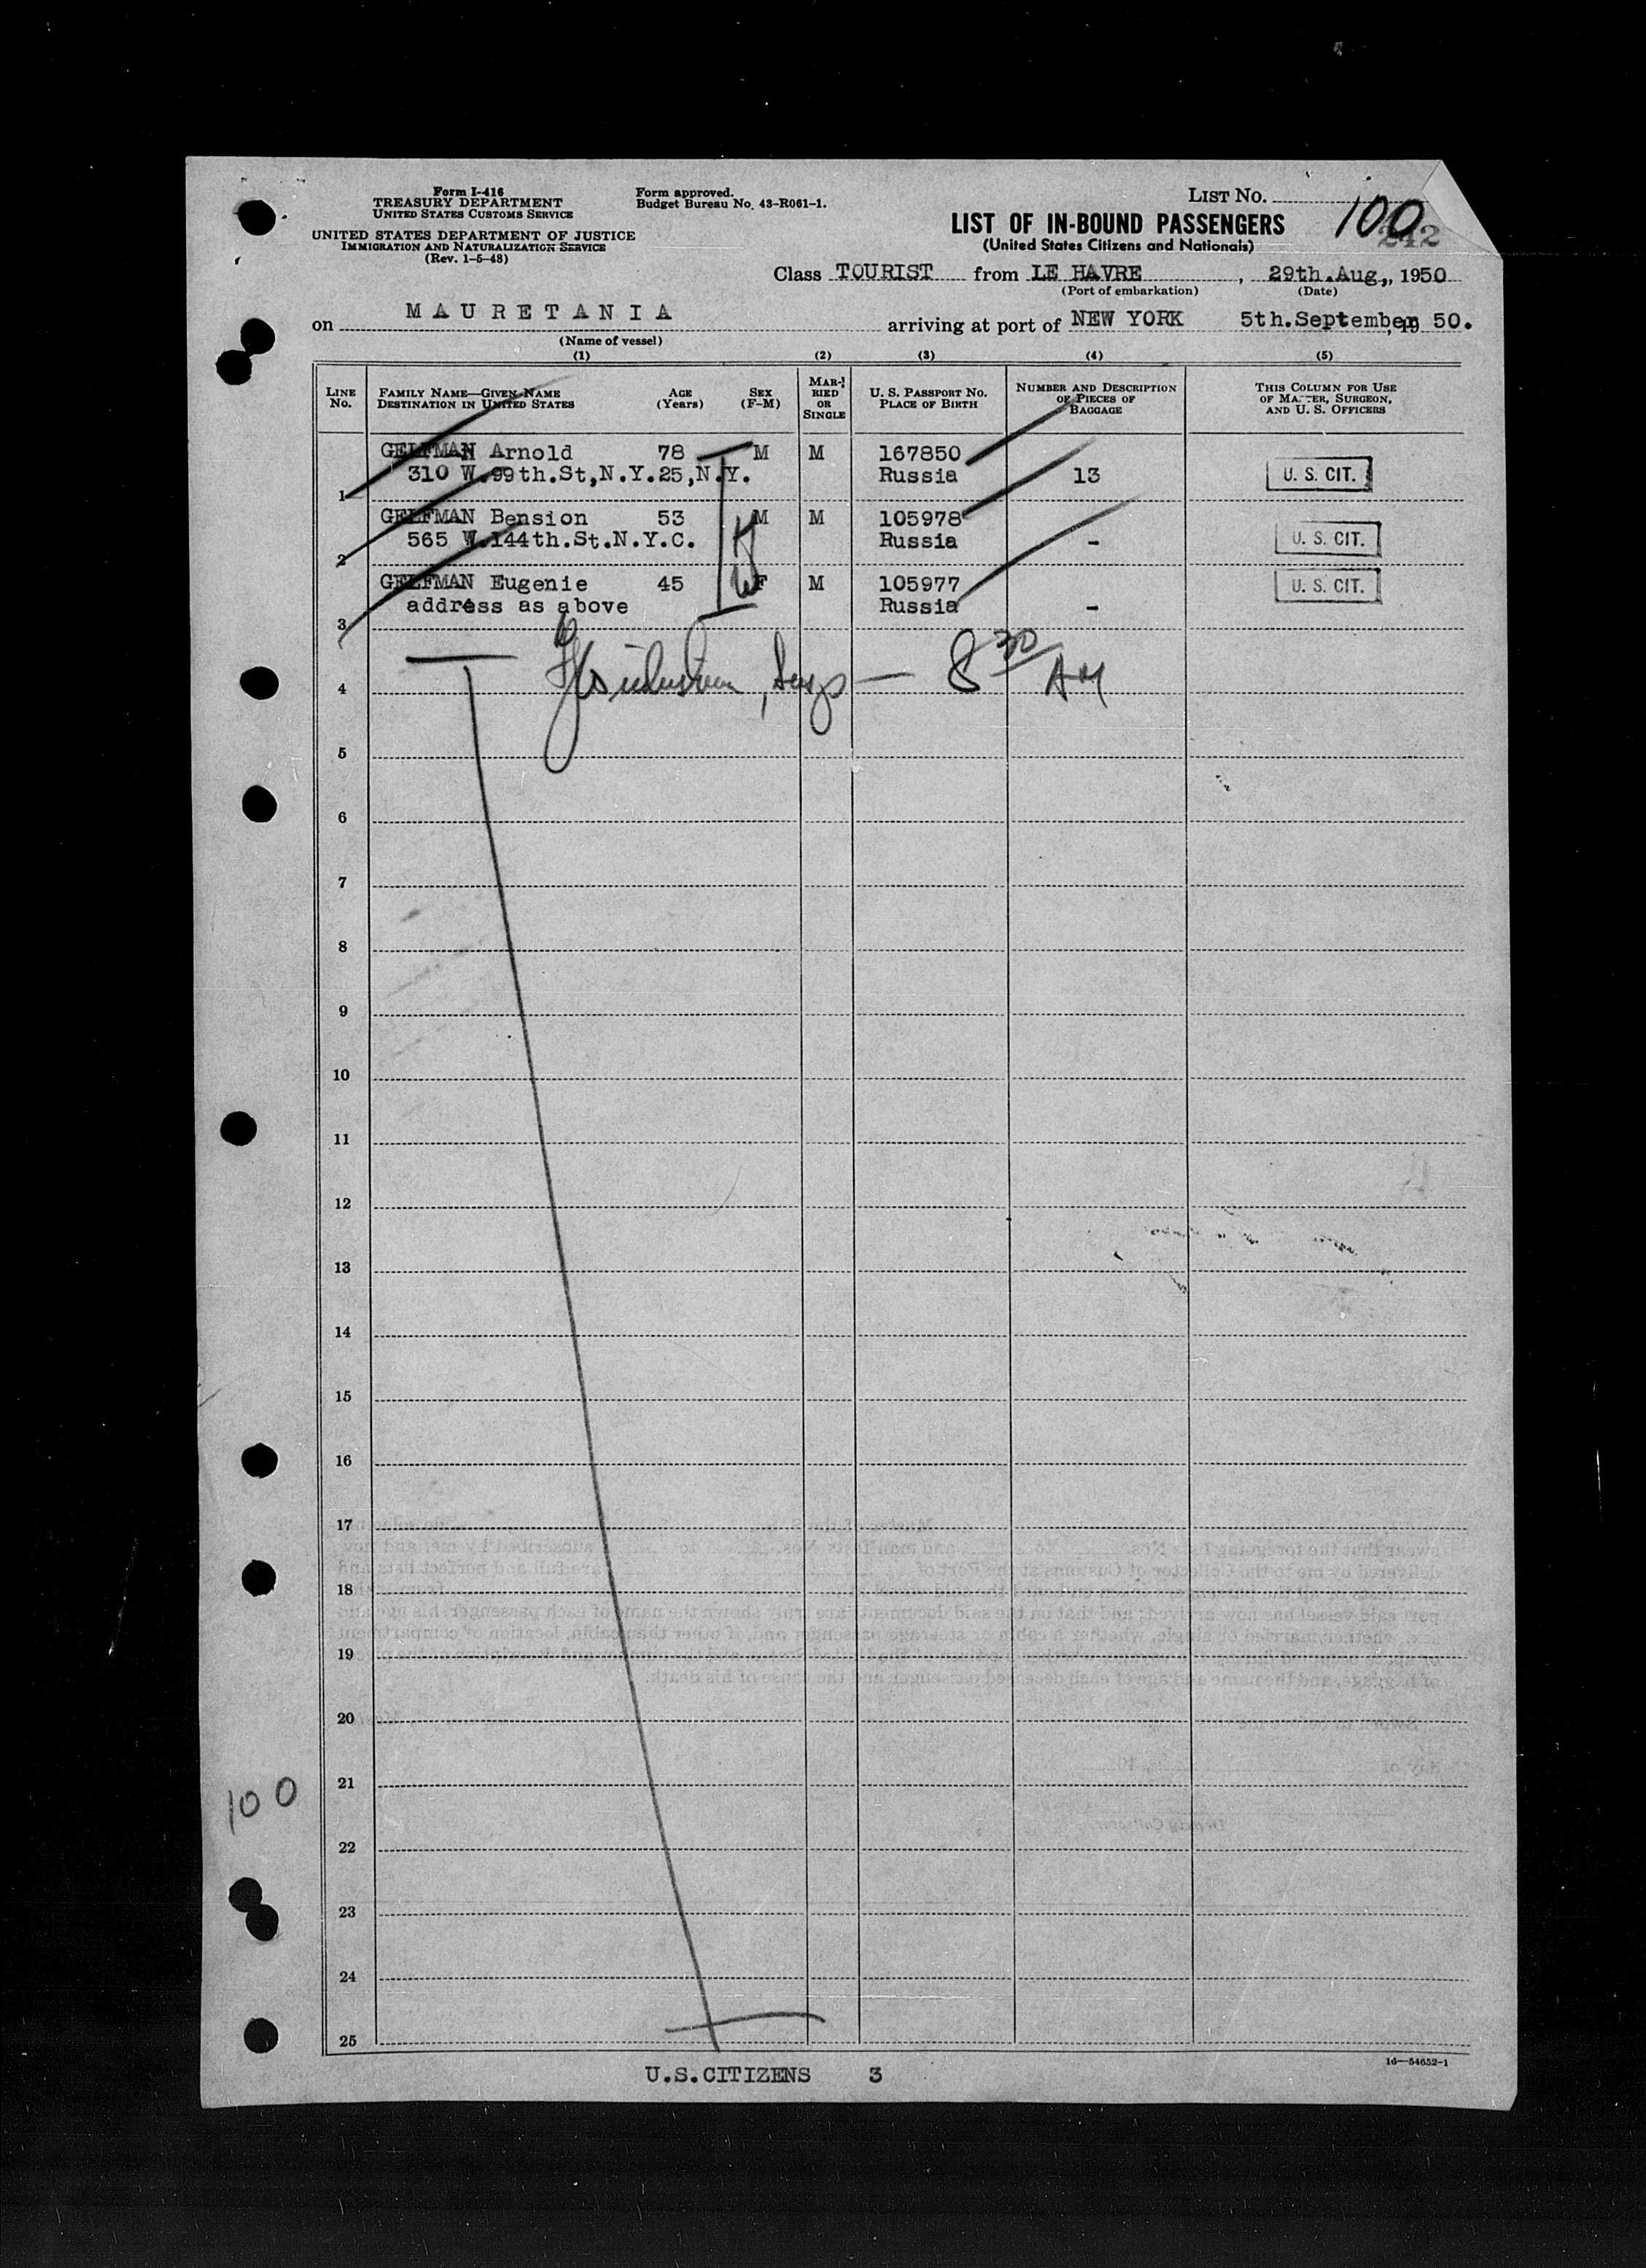 Form I-416
TREASURY DEPARTMENT
UNITED STATES CUSTOMS SERVICE
UNITED STATES DEPARTMENT OF JUSTICE
IMMIGRATION AND NATURALIZATION SERVICE
(Rev. 1-5-48)
Form approved.
Budget Bureau No. 43-R061-1.
LIST NO. 100
242
LIST OF IN-BOUND PASSENGERS
(United States Citizens and Nationals)
Class TOURIST from LE HAVRE, 29th.Aug., 1950
(Port of embarkation) (Date)
on MAURETANIA arriving at port of NEW YORK 5th.September, 19 50.
(Name of vessel)
(1) (2) (3) (4) (5)
LINE No. FAMILY NAME—GIVEN NAME DESTINATION IN UNITED STATES AGE (Years) SEX (F-M) MARRIED OR SINGLE U. S. PASSPORT NO. PLACE OF BIRTH NUMBER AND DESCRIPTION OF PIECES OF BAGGAGE THIS COLUMN FOR USE OF MASTER, SURGEON, AND U. S. OFFICERS
GELFMAN Arnold 78 M M 167850
1 310 W.99th.St,N.Y.25,N.Y. Russia 13 U. S. CIT.
GELFMAN Bension 53 M M 105978
2 565 W.144th.St.N.Y.C. Russia - U. S. CIT.
GELFMAN Eugenie 45 F M 105977 U. S. CIT.
3 address as above Russia -
— 8 30 AM
4
5
6
7
8
9
10
11
12
13
14
15
16
17
18
19
20
21
100
22
23
24
25
16—54652-1
U.S.CITIZENS 3